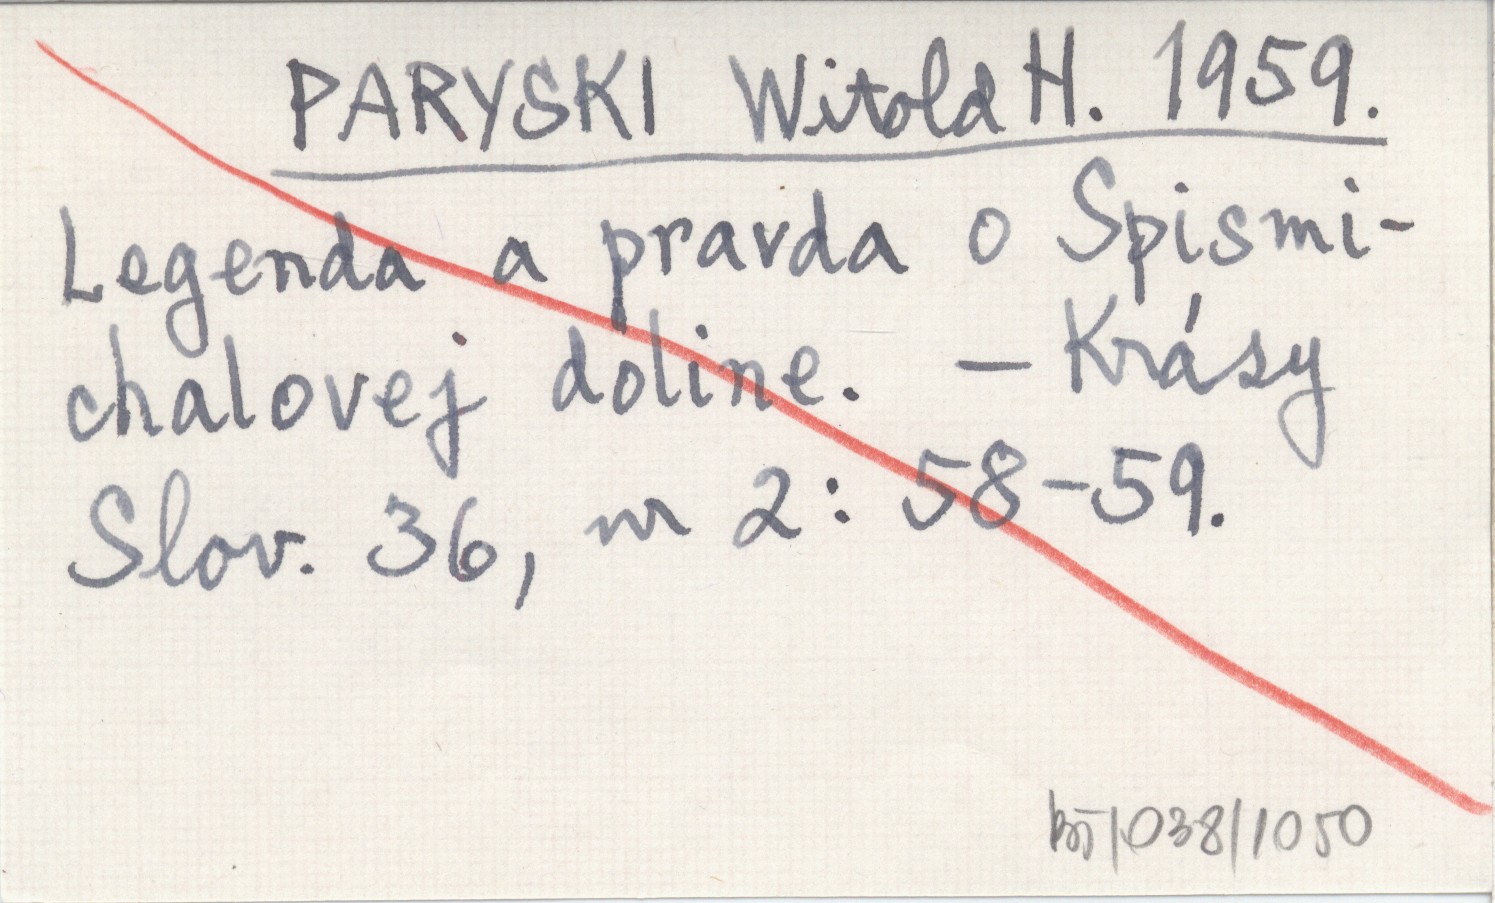 PARYSKI Witold H. 1959.
Legenda a pravda o Spismi-
chalovej doline. – Krásy
Slov. 36, nr 2: 58-59.
/038/1050